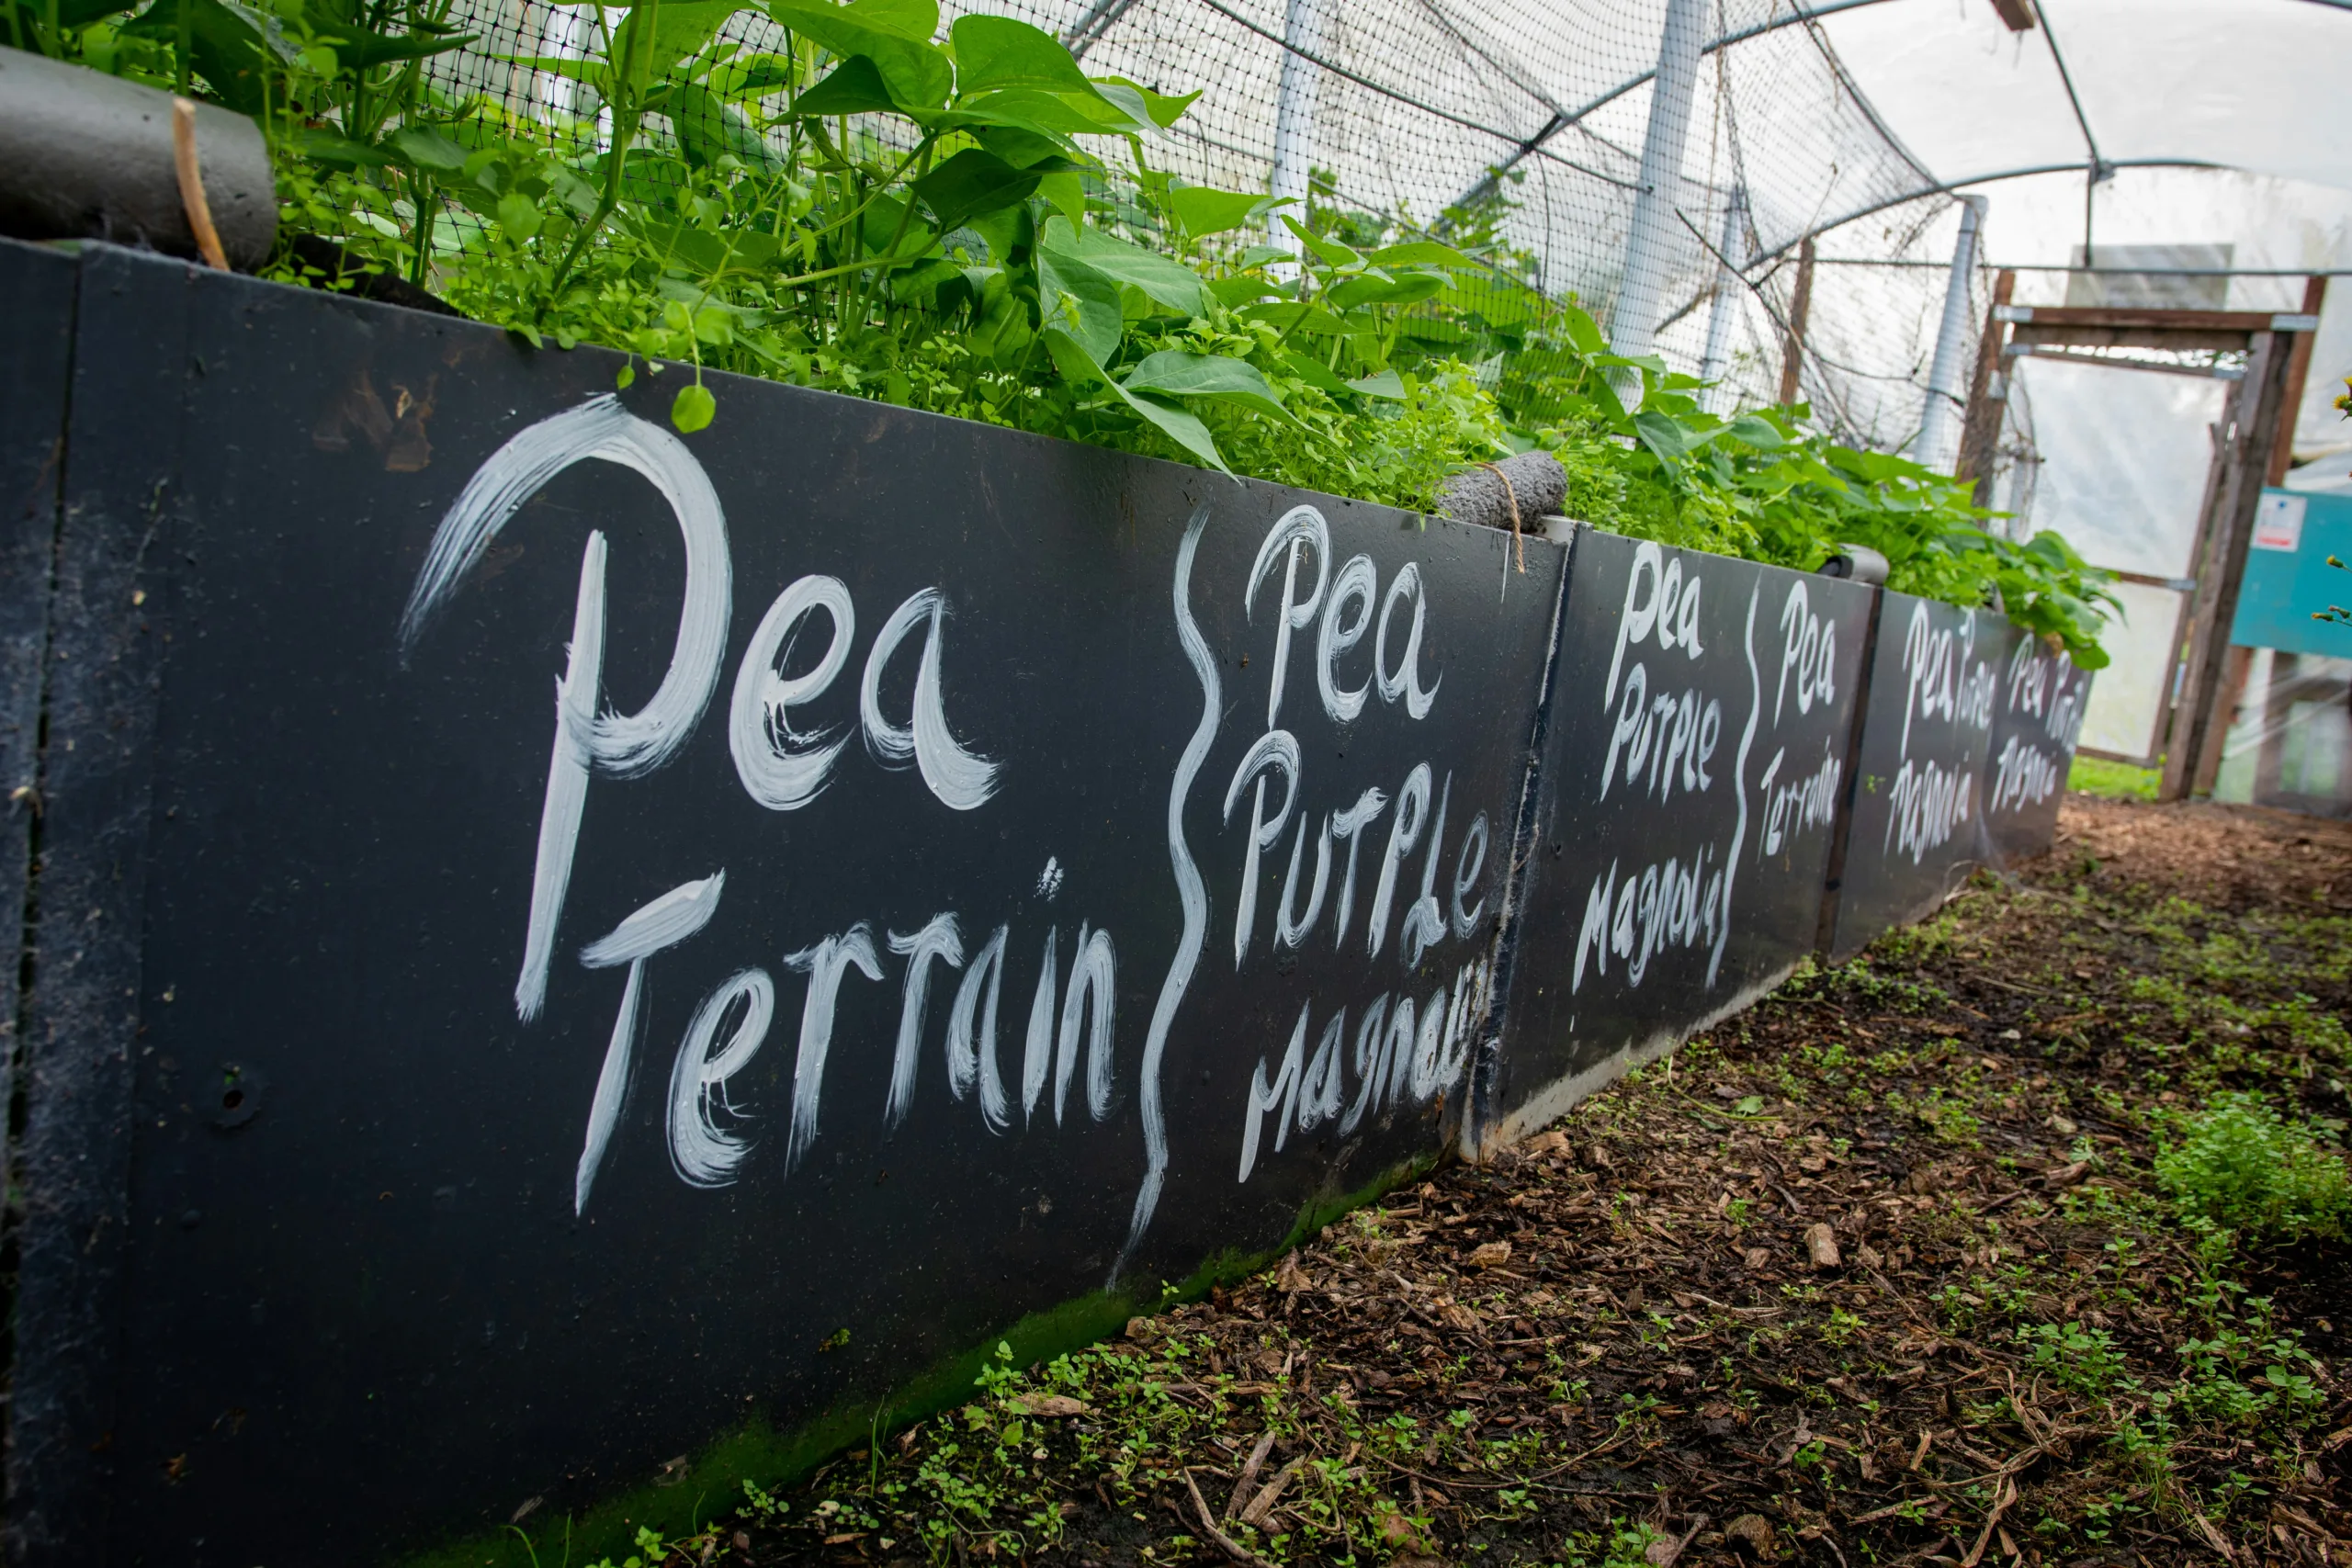 Pea
Terrain
Pea
PUTPLe
Magnolia
Pea
PUTPLe
Magnolia
Pea
Terrain
Pea Purple
Magnolia
Pea Purple
Magnolia